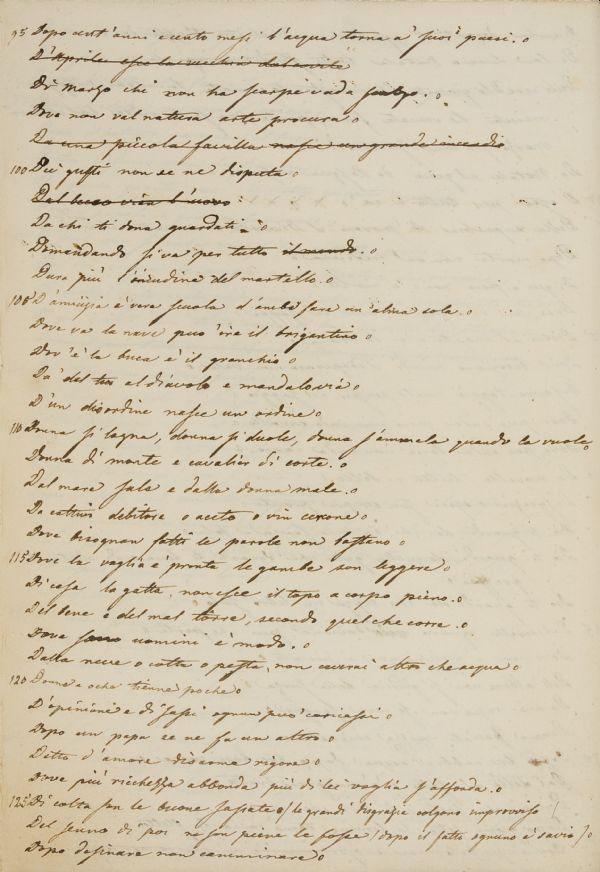 95 Dopo cent'anni e cento mesi l'acqua torna a' suoi paesi. o
D'Aprile esce la vecchia dal covile
Di marzo chi non ha scarpe vada scalzo. o
Dove non val natura arte procura o
Da una piccola favilla nasce un grande incendio
100 Dei gusti non se ne disputa o
Dal buco vien l'uovo:
Da chi ti dona guardati. o
Domandando si va per tutto il mondo. o
Dura più l'incudine del martello. o
105 D'amicizia è vera scuola d'ambe fare un'alma sola. o
Dove va la nave puo' ire il brigantino o
Dov'è la buca è il granchio o
Da' del tuo al diavolo e mandalo via o
D'un disordine nasce un ordine o
110 Donna si lagna, donna si duole, donna s'ammala quando la vuole o
Donna di monte e cavalier di corte. o
Dal mare sale e dalla donna male. o
Da cattivo debitore o aceto o vin cercone o
Dove bisognan fatti le parole non bastano o
115 Dove la voglia è pronta le gambe son leggere o
Di casa la gatta, non esce il topo a corpo pieno. o
Del bene e del mal torre, secondo quel che corre. o
Dove sono uomini è modo. o
Dalla neve o cotta o pesta, non caverai altro che acqua o
120 Donne e oche tienne poche o
D'opinioni e di sassi ognun può caricassi o
Dopo un papa se ne fa un altro o
Detto d'amore disarma rigore o
Dove più ricchezza abbonda più di lei voglia s'affonda. o
125 Di colta son le buone sassate o / le grandi disgrazie colgono improvviso /
Del senno di poi ne son piene le fosse / dopo il fatto ognuno è savio / o
Dopo desinare non camminare o